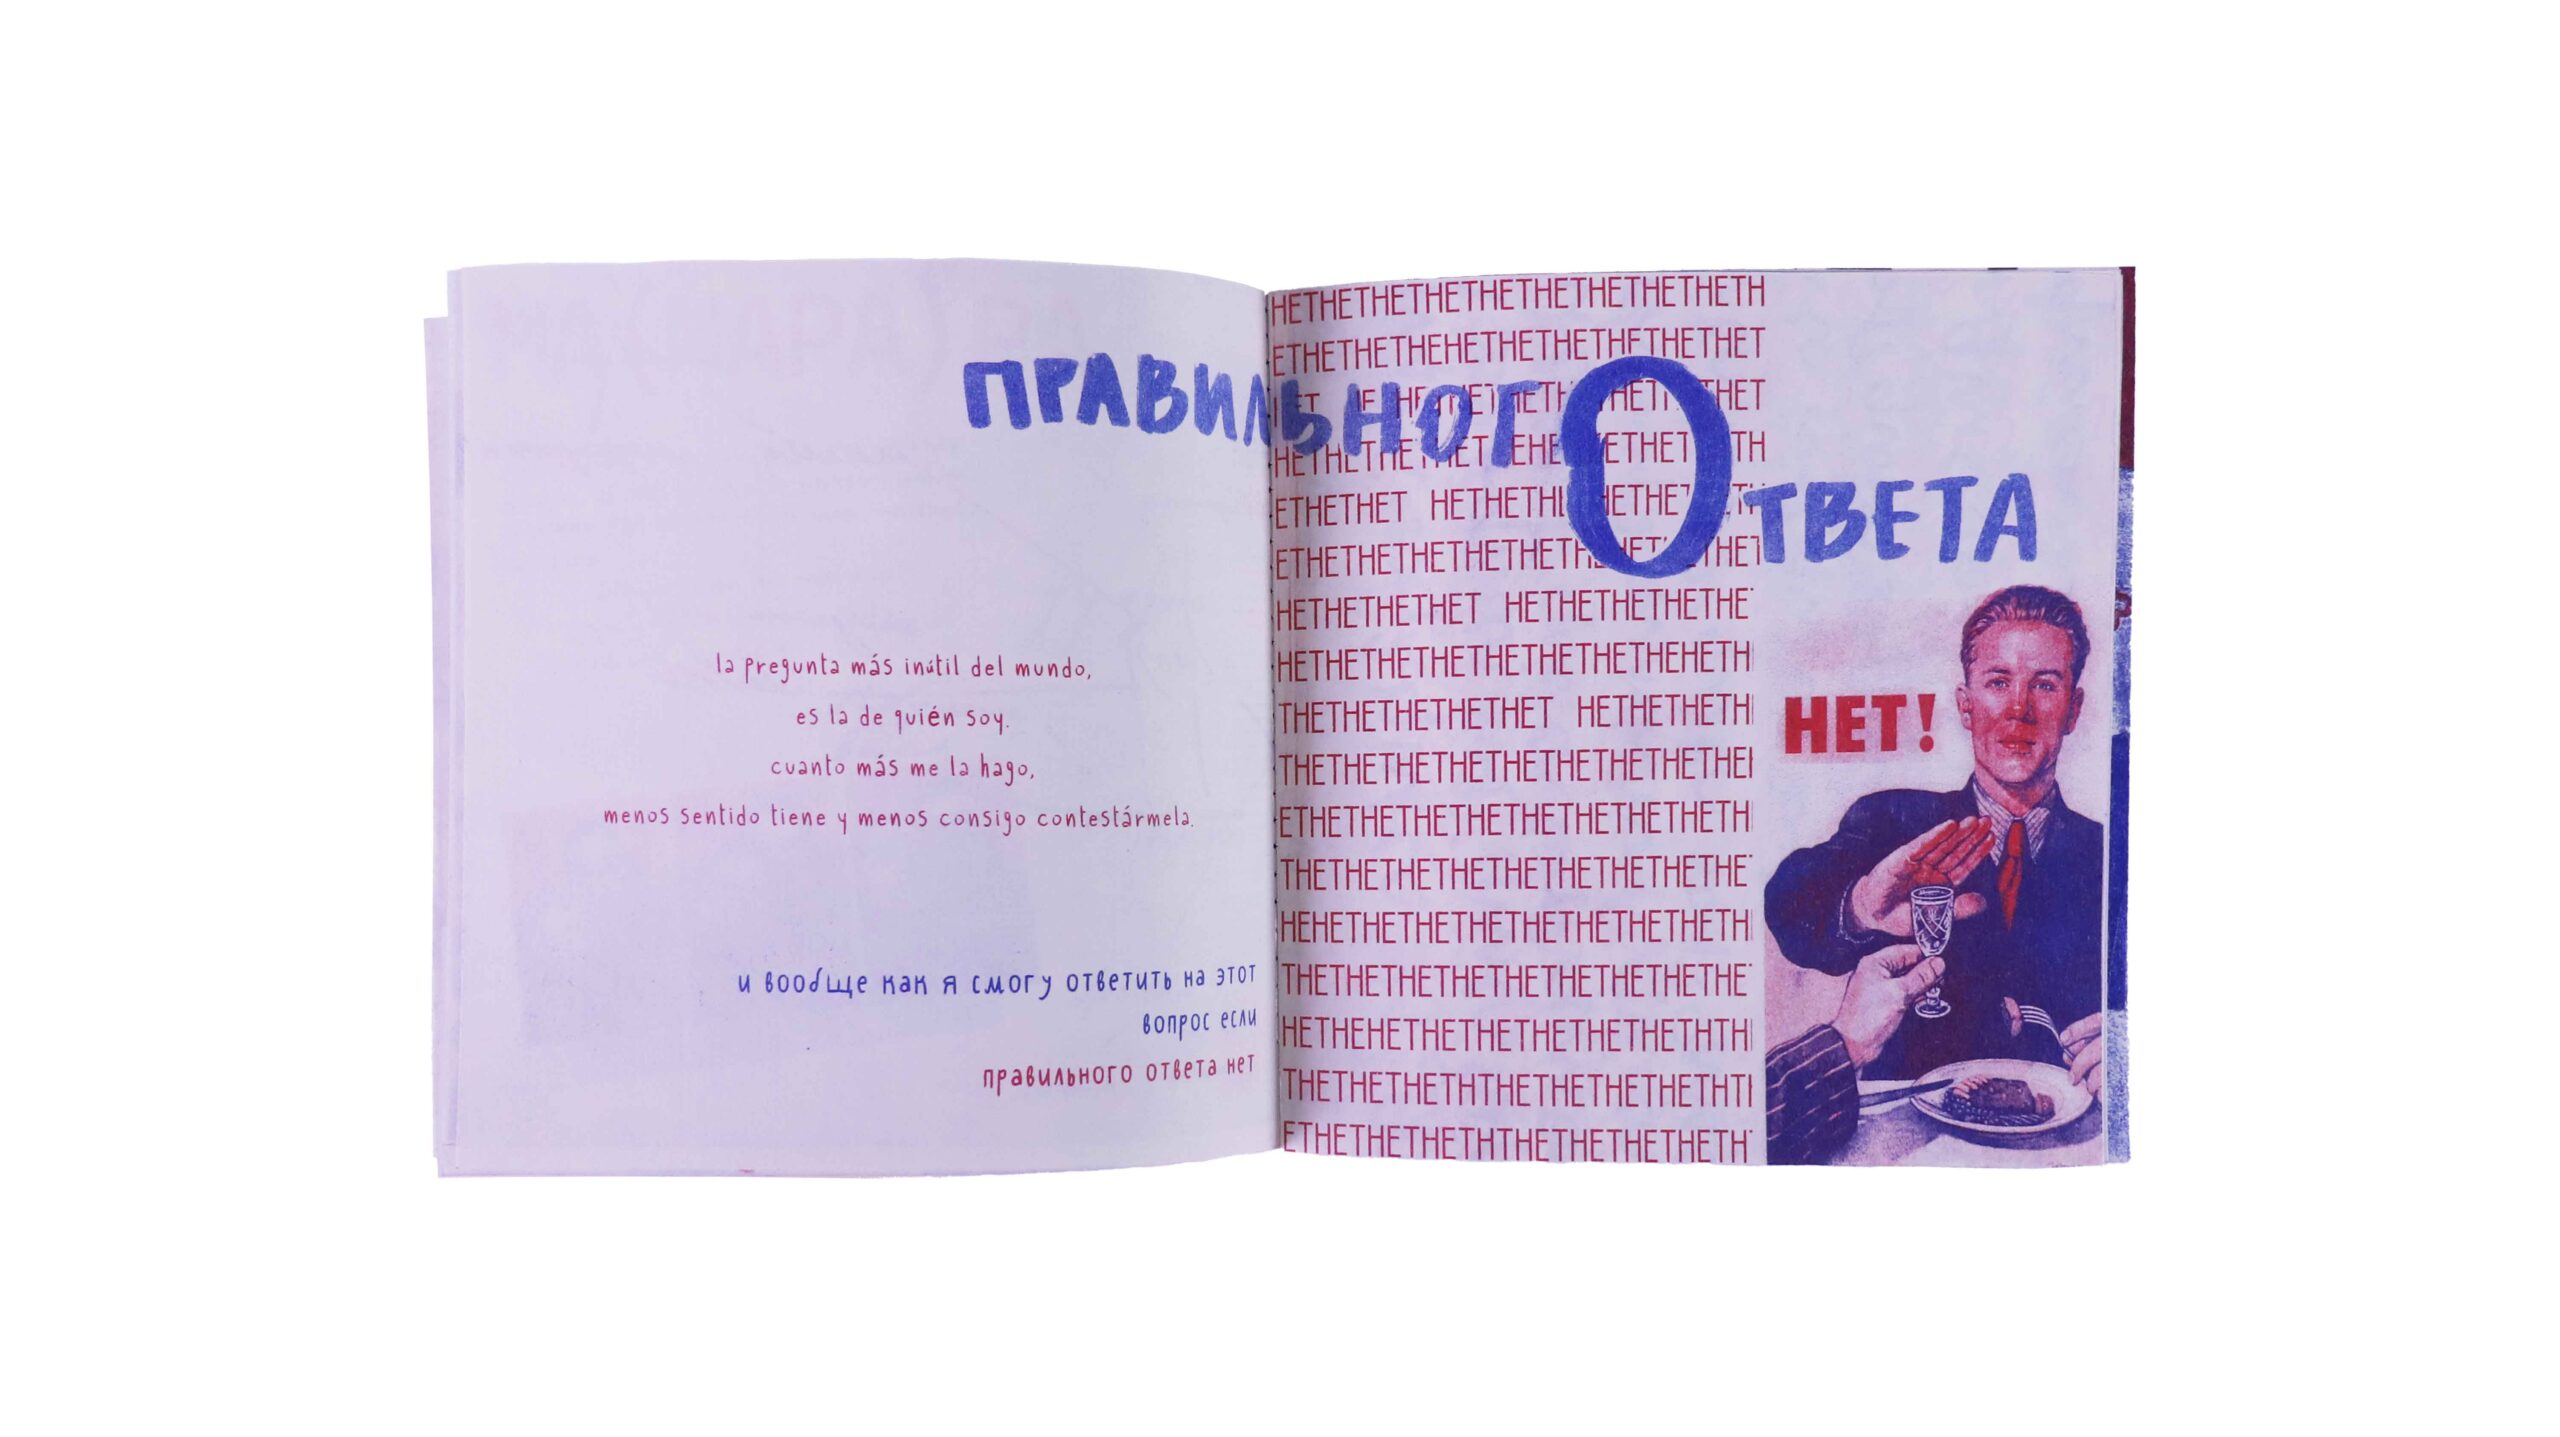 ПРАВИЛЬНОГО
ОТВЕТА
la pregunta más inútil del mundo,
es la de quién soy.
cuanto más me la hago,
menos sentido tiene y menos consigo contestármela.
и вообще как я смогу ответить на этот
вопрос если
правильного ответа нет
НЕТНЕТНЕТНЕТНЕТНЕТНЕТНЕТНЕТНЕТН
ЕТНЕТНЕТНЕТНЕНЕТНЕТНЕТНЕТНЕТНЕТ
ЕТНЕТНЕТ НЕТНЕТН
ЕТНЕТНЕТНЕТНЕТНЕТНЕТН
НЕТНЕТНЕТНЕТНЕТ НЕТНЕТНЕТНЕТНЕТНЕ
НЕТНЕТНЕТНЕТНЕТНЕТНЕТНЕТНЕТНЕНЕТН
ТНЕТНЕТНЕТНЕТНЕТНЕТ НЕТНЕТНЕТНЕТН
ТНЕТНЕТНЕТНЕТНЕТНЕТНЕТНЕТНЕТНЕТНЕ
ЕТНЕТНЕТНЕТНЕТНЕТНЕТНЕТНЕТНЕТНЕТН
ТНЕТНЕТНЕТНЕТНЕТНЕТНЕТНЕТНЕТНЕТНЕ
НЕНЕТНЕТНЕТНЕТНЕТНЕТНЕТНЕТНЕТНЕТН
ТНЕТНЕТНЕТНЕТНЕТНЕТНЕТНЕТНЕТНЕТНЕ
НЕТНЕНЕТНЕТНЕТНЕТНЕТНЕТНЕТНЕТНТН
ТНЕТНЕТНЕТНЕТНТНЕТНЕТНЕТНЕТНЕТНТ
ЕТНЕТНЕТНЕТНЕТНТНЕТНЕТНЕТНЕТНЕТН
НЕТ!